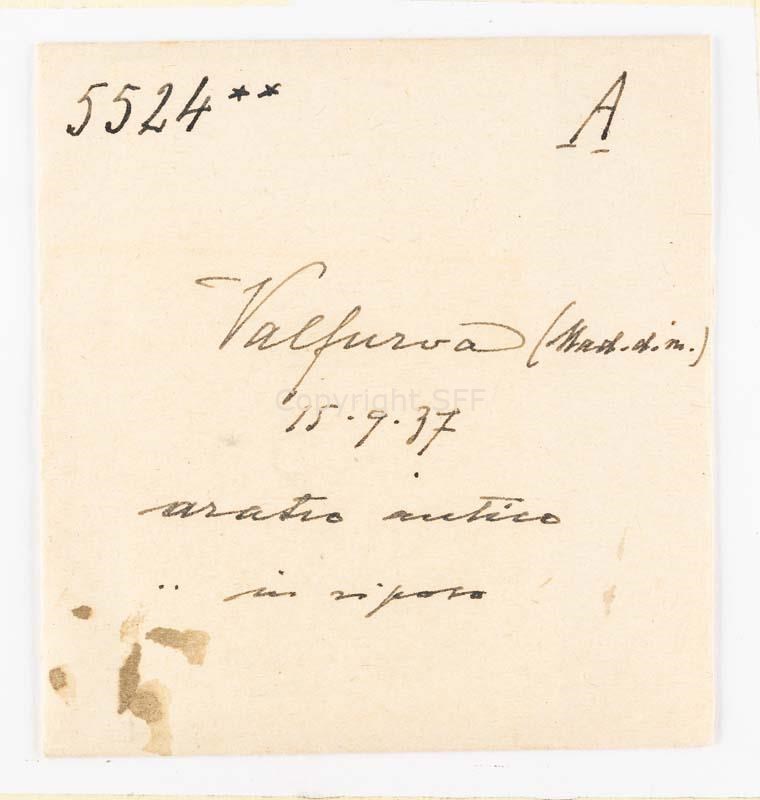 5524** A
Valfurva (Mad. d. m.)
Copyright SFF
15.9.37
aratro antico
" in riposo